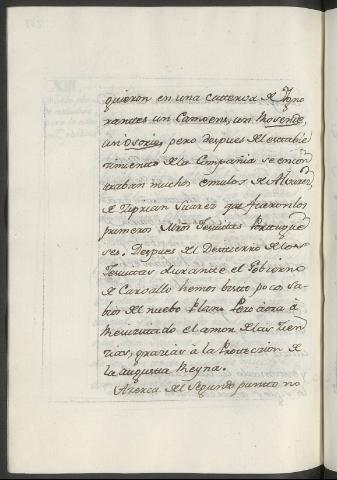 quieron en una caterva de Igno
rantes un Camoens, un Resende,
un Osorio; pero despues del estable
cimiento de la Compañia se encon
traban muchos emulos de Alvarez,
de Ziprian Suarez que fueron los
primeros Mros Jesuitas Portugue
ses. Despues del Destierro de los
Jesuitas durante el Gobierno
de Carvallo hemos visto poco sa
bios del nuebo Plan. Pero aora à
Resuzitado el amor de las Zien
zias, grazias à la Proteczion de
la augusta Reyna.
Azerca del Segundo punto no